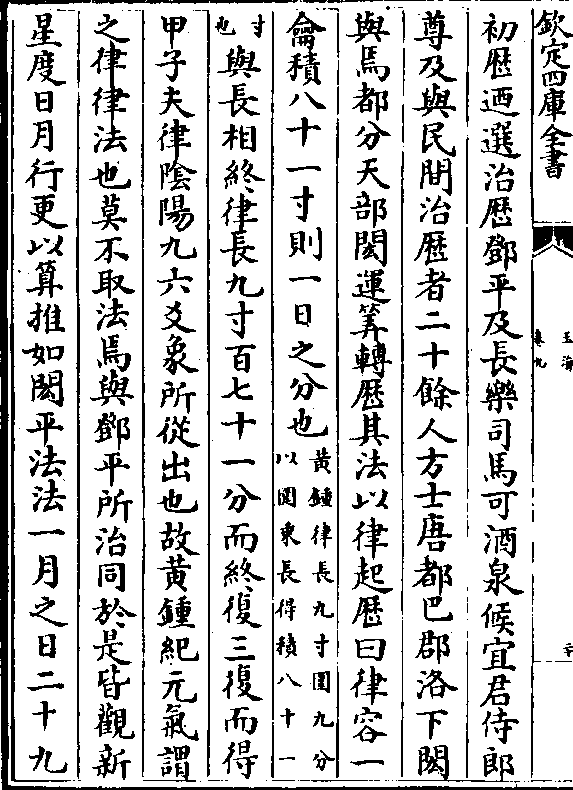 欽定四庫全書
玉海
卷九
初歴廼選治歴鄧平及長樂司馬可酒泉候宜君侍郎
尊及與民間治歴者二十餘人方士唐都巴郡洛下閎
與焉都分天部閎運筭轉歴其法以律起歴曰律容一
龠積八十一寸則一日之分也黄鍾律長九寸圍九分
以圍乘長得積八十一
寸也與長相終律長九寸百七十一分而終復三復而得
甲子夫律陰陽九六爻象所從出也故黄鍾紀元氣謂
之律律法也莫不取法焉與鄧平所治同於是皆觀新
星度日月行更以算推如閎平法法一月之日二十九